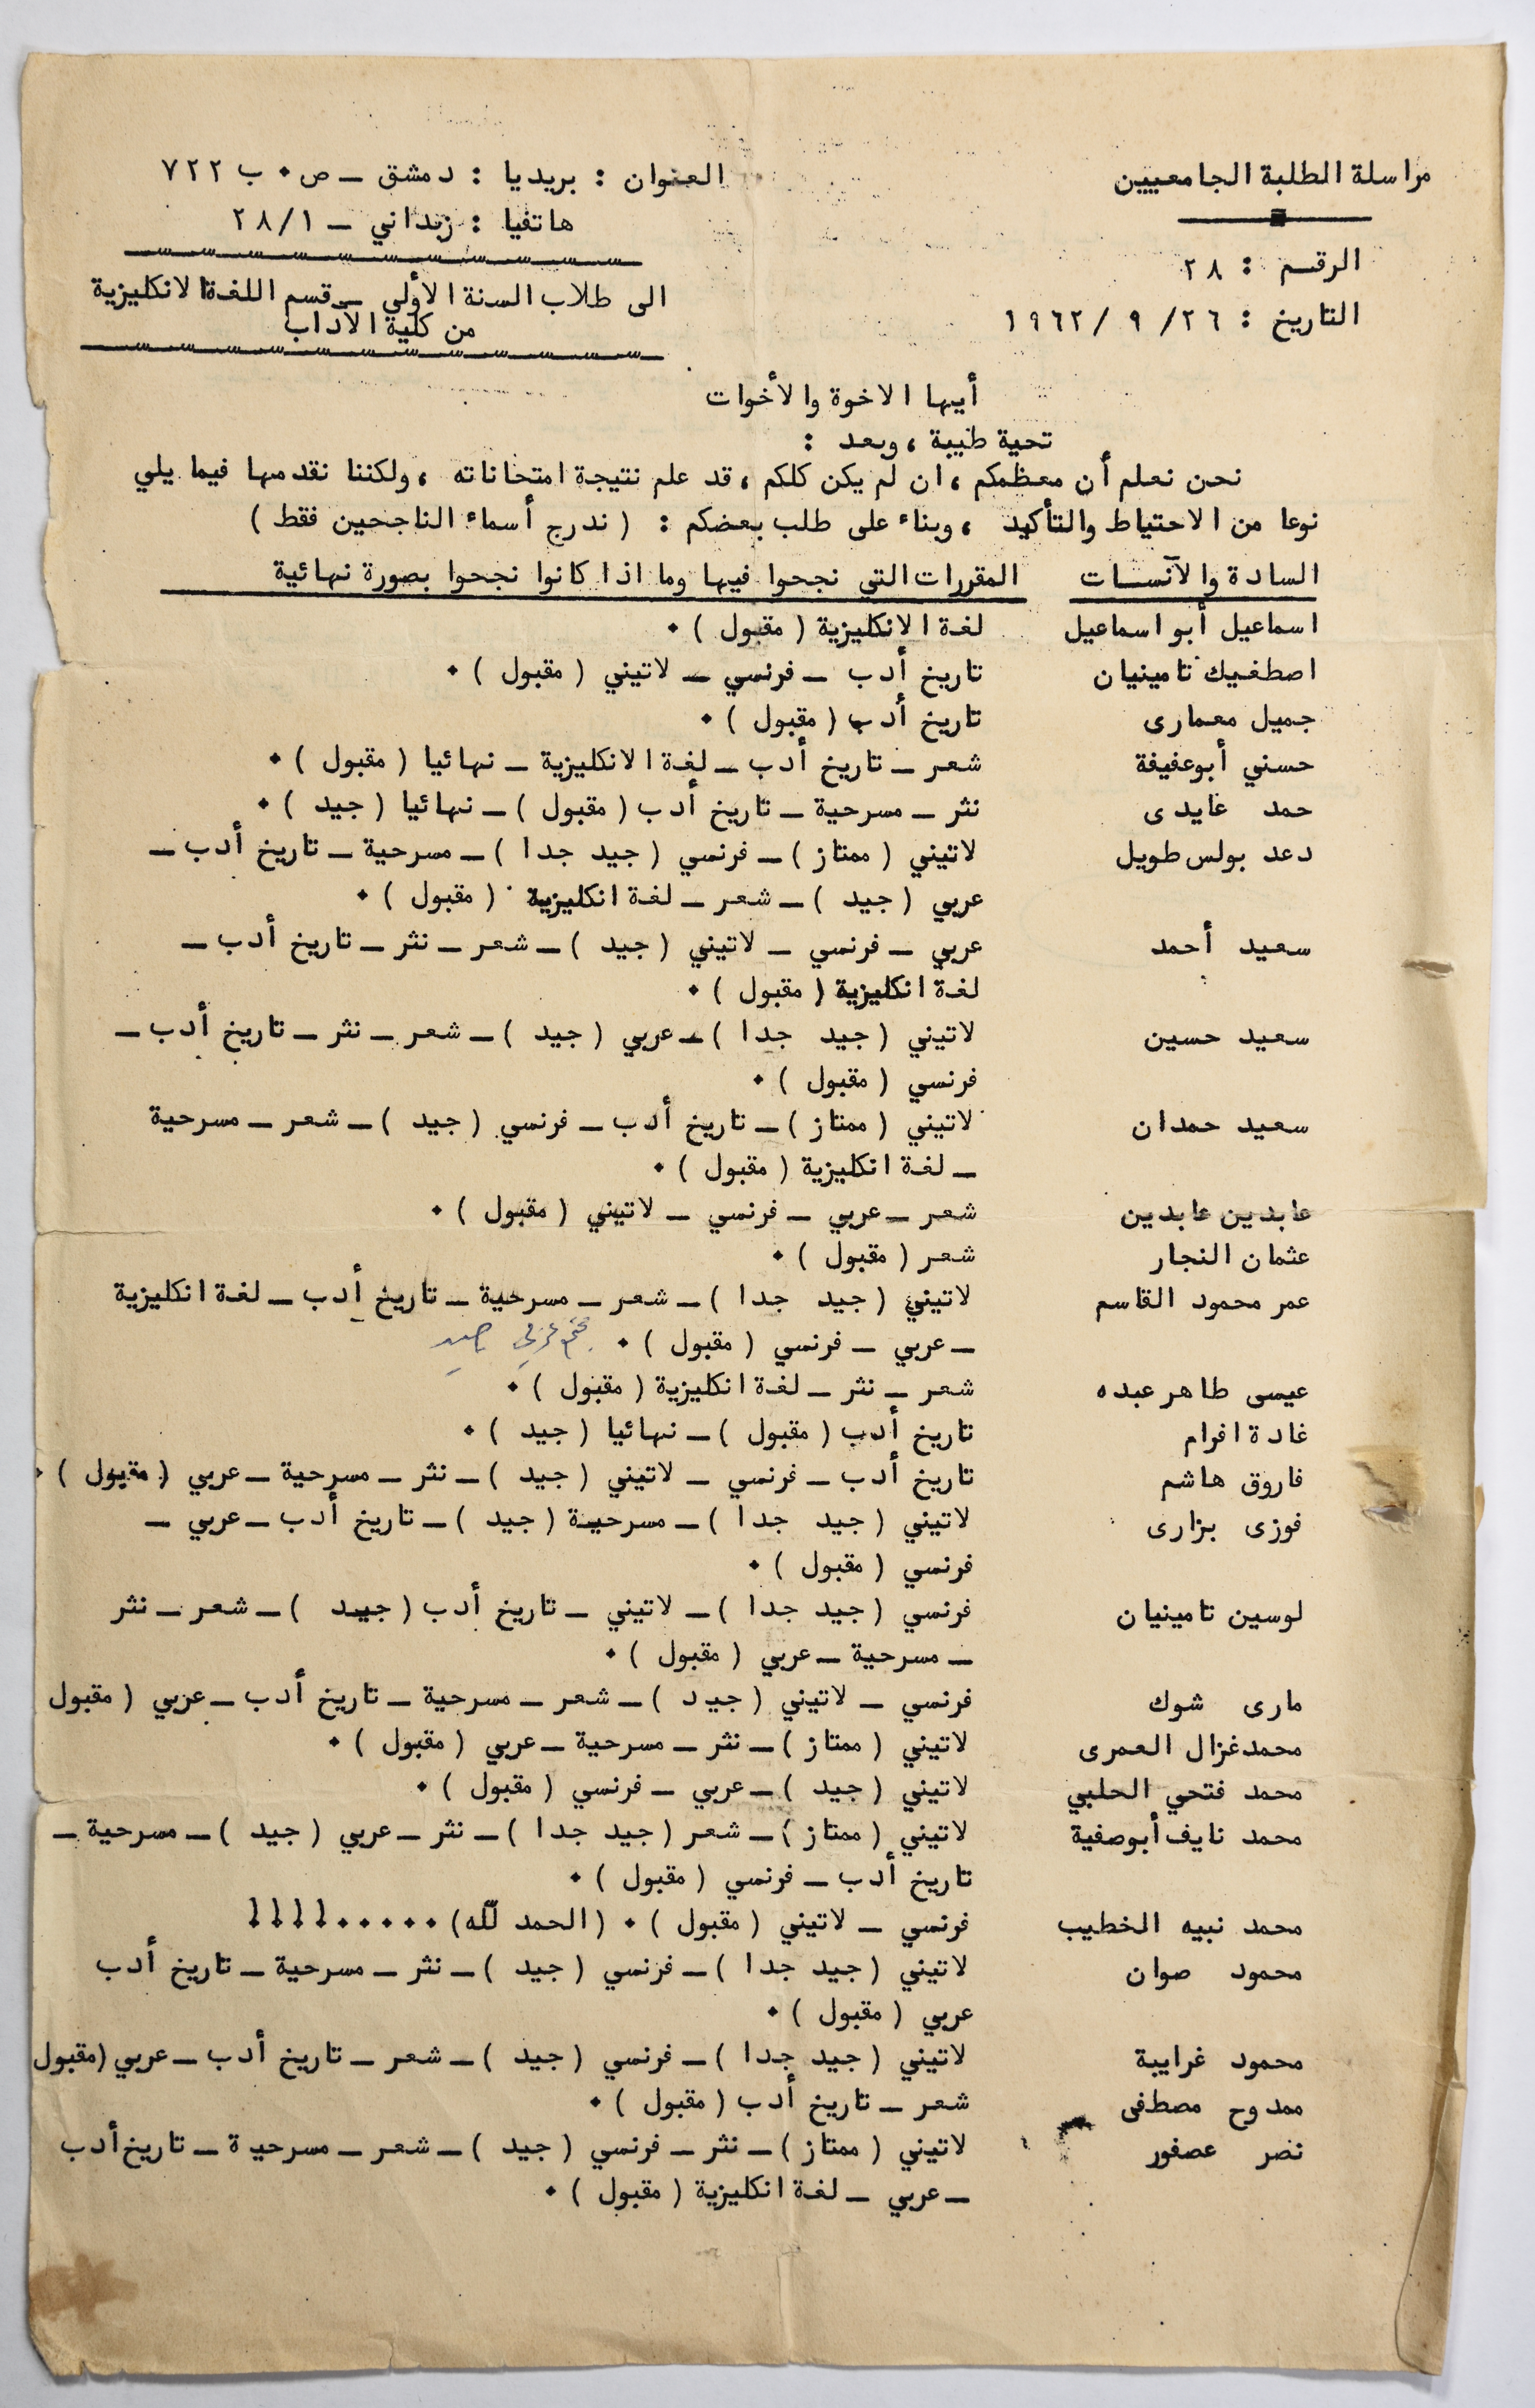 مراسلة الطلبة الجامعيين
الرقم : ٢٨
التاريخ : ٢٦/ ٩ /١٩٦٢
العنوان : بريديا : دمشق ـ ص٠ ب ٧٢٢
هاتفيا : زنداني ـ ٢٨/١
الى طلاب السنة الأولى ـ قسم اللغة الانكليزية
من كلية الآداب
أيها الاخوة والأخوات
تحية طيبة ، وبعد :
نحن نعلم أن معظمكم ، ان لم يكن كلكم ، قد علم نتيجة امتحاناته ، ولكننا نقدمها فيما يلي
نوعا من الاحتياط والتأكيد ، وبناء على طلب بعضكم : ( ندرج أسماء الناجحين فقط )
السادة والآنسات المقررات التي نجحوا فيها وما اذا كانوا نجحوا بصورة نهائية
اسماعيل أبو اسماعيل لغة الانكليزية ( مقبول ) ٠
اصطفيك تامينيان تاريخ أدب ـ فرنسي ـ لاتيني ( مقبول ) ٠
جميل معمارى تاريخ أدب ( مقبول ) ٠
حسني أبوعفيفة شعر ـ تاريخ أدب ـ لغة الانكليزية ـ نهائيا ( مقبول ) ٠
حمد عايدى نثر ـ مسرحية ـ تاريخ أدب ( مقبول ) ـ نهائيا ( جيد ) ٠
دعد بولس طويل لاتيني ( ممتاز ) ـ فرنسي ( جيد جدا ) ـ مسرحية ـ تاريخ أدب ـ
عربي ( جيد ) ـ شعر ـ لغة انكليزية ( مقبول ) ٠
سعيد أحمد عربي ـ فرنسي ـ لاتيني ( جيد ) ـ شعر ـ نثر ـ تاريخ أدب ـ
لغة انكليزية ( مقبول ) ٠
سعيد حسين لاتيني ( جيد جدا ) ـ عربي ( جيد ) ـ شعر ـ نثر ـ تاريخ أدب ـ
فرنسي ( مقبول ) ٠
سعيد حمدان لاتيني ( ممتاز ) ـ تاريخ أدب ـ فرنسي ( جيد ) ـ شعر ـ مسرحية
ـ لغة انكليزية ( مقبول ) ٠
عابدين عابدين شعر ـ عربي ـ فرنسي ـ لاتيني ( مقبول ) ٠
عثمان النجار شعر ( مقبول ) ٠
عمر محمود القاسم لاتيني ( جيد جدا ) ـ شعر ـ مسرحية ـ تاريخ أدب ـ لغة انكليزية
ـ عربي ـ فرنسي ( مقبول ) ٠
عيسى طاهر عبده شعر ـ نثر ـ لغة انكليزية ( مقبول ) ٠
غادة افرام تاريخ أدب ( مقبول ) ـ نهائيا ( جيد ) ٠
فاروق هاشم تاريخ أدب ـ فرنسي ـ لاتيني ( جيد ) ـ نثر ـ مسرحية ـ عربي ( مقبول ) ٠
فوزى بزارى لاتيني ( جيد جدا ) ـ مسرحية ( جيد ) ـ تاريخ أدب ـ عربي ـ
فرنسي ( مقبول ) ٠
لوسين تامينيان فرنسي ( جيد جدا ) ـ لاتيني ـ تاريخ أدب ( جيد ) ـ شعر ـ نثر
ـ مسرحية ـ عربي ( مقبول ) ٠
مارى شوك فرنسي ـ لاتيني ( جيد ) ـ شعر ـ مسرحية ـ تاريخ أدب ـ عربي ( مقبول
محمد غزال العمرى لاتيني ( ممتاز ) ـ نثر ـ مسرحية ـ عربي ( مقبول ) ٠
محمد فتحي الحلبي لاتيني ( جيد ) ـ عربي ـ فرنسي ( مقبول ) ٠
محمد نايف أبوصفية لاتيني ( ممتاز ) ـ شعر ( جيد جدا ) ـ نثر ـ عربي ( جيد ) ـ مسرحية ـ
تاريخ أدب ـ فرنسي ( مقبول ) ٠
محمد نبيه الخطيب فرنسي ـ لاتيني ( مقبول ) ٠ ( الحمد لله ) ٠٠٠٠٠ !!!!
محمود صوان لاتيني ( جيد جدا ) ـ فرنسي ( جيد ) ـ نثر ـ مسرحية ـ تاريخ أدب
عربي ( مقبول ) ٠
محمود غرايبة لاتيني ( جيد جدا ) ـ فرنسي ( جيد ) ـ شعر ـ تاريخ أدب ـ عربي ( مقبول
ممدوح مصطفى شعر ـ تاريخ أدب ( مقبول ) ٠
نصر عصفور لاتيني ( ممتاز ) ـ نثر ـ فرنسي ( جيد ) ـ شعر ـ مسرحية ـ تاريخ أدب
ـ عربي ـ لغة انكليزية ( مقبول ) ٠